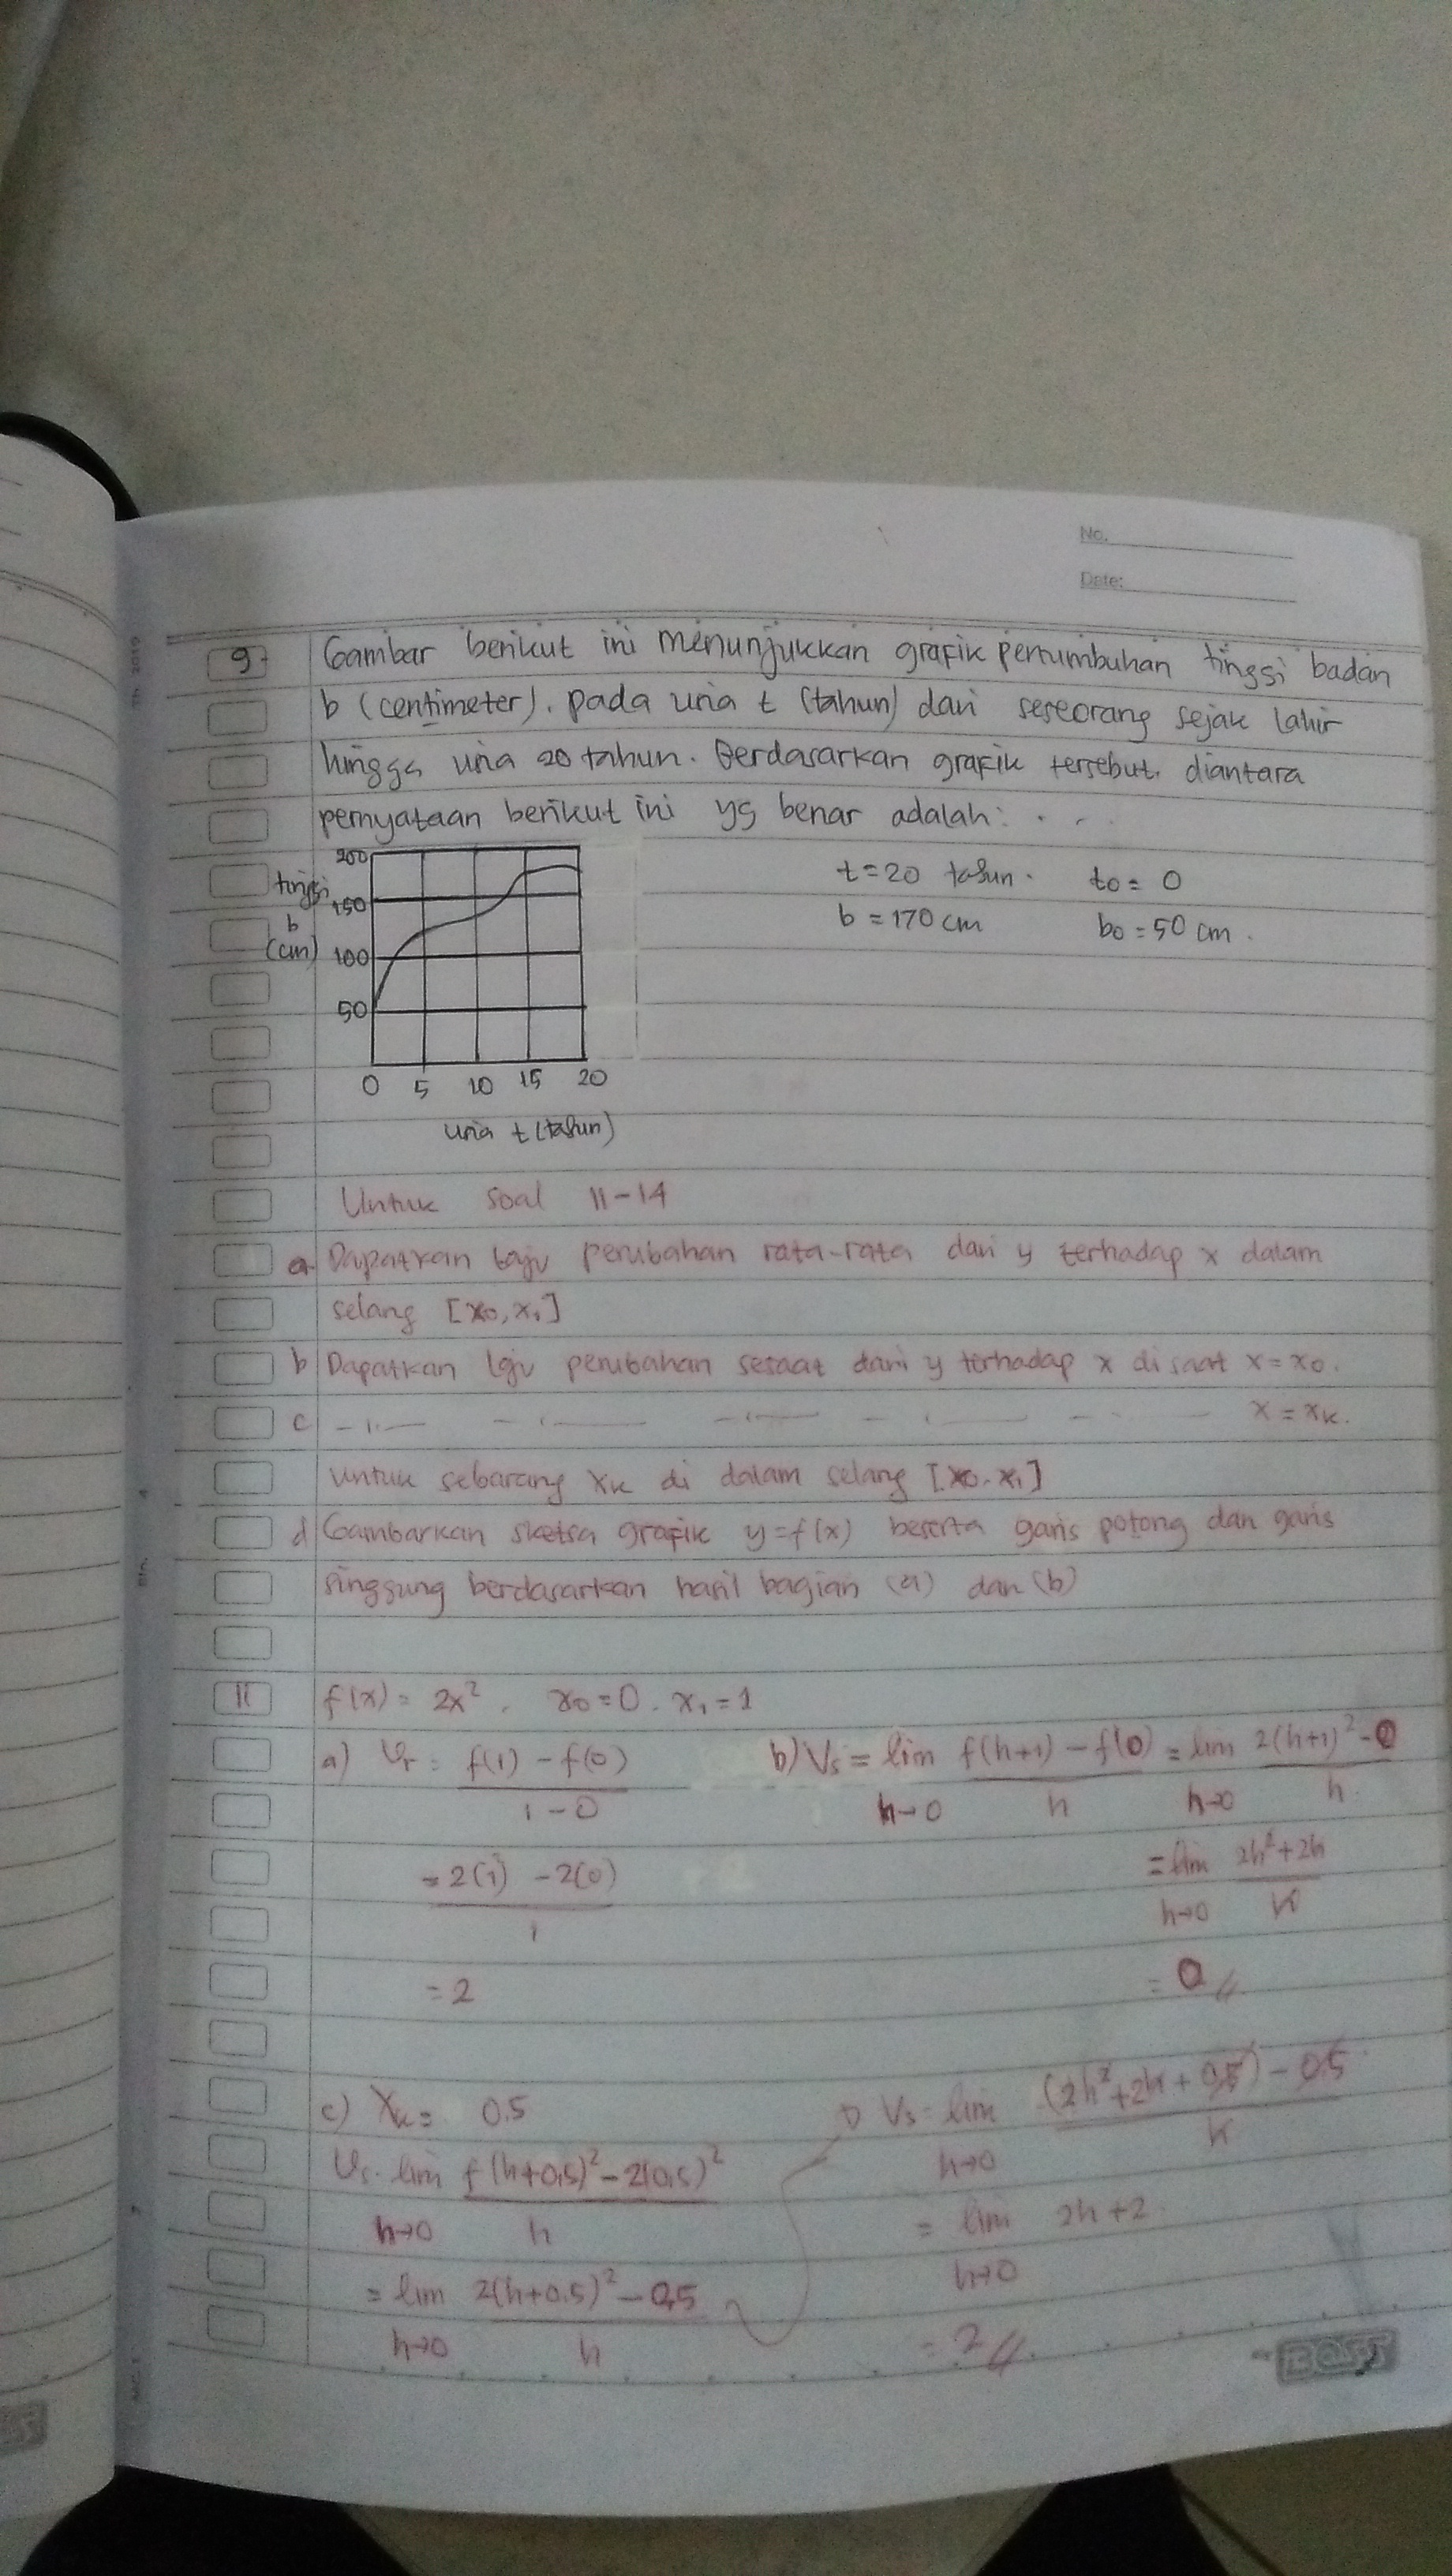 No.
Date:
9. Gambar berikut ini menunjukkan grafik pertumbuhan tinggi badan
b (centimeter). pada usia t (tahun) dari seseorang sejak lahir
hingga usia 20 tahun. Berdasarkan grafik tersebut. diantara
pernyataan berikut ini yg benar adalah: . . .
tinggi
b
(cm)
200
150
100
50
0 5 10 15 20
usia t (tahun)
t = 20 tahun. t0 = 0
b = 170 cm b0 = 50 cm.
Untuk soal 11-14
a Dapatkan laju perubahan rata-rata dari y terhadap x dalam
selang [x0, x1]
b Dapatkan laju perubahan sesaat dari y terhadap x di saat x = x0.
c x = xk.
untuk sebarang xk di dalam selang [x0. x1]
d Gambarkan sketsa grafik y = f(x) beserta garis potong dan garis
singgung berdasarkan hasil bagian (a) dan (b)
11 f(x) = 2x². x0 = 0. x1 = 1
a) Vr = f(1) - f(0)
1 - 0
= 2(1) - 2(0)
1
= 2
b) Vs = lim f(h+1) - f(0) = lim 2(h+1)² - 0
h→0 h h→0 h
= lim 2h²+2h
h→0 h
= 0
c) Xk = 0.5
Vs. lim f(h+0,5)² - 2(0,5)²
h→0 h
= lim 2(h+0.5)² - 0,5
h→0 h
Vs = lim (2h²+2h+0,5) - 0.5
h→0 h
= lim 2h+2
h→0
= 2
BOSS